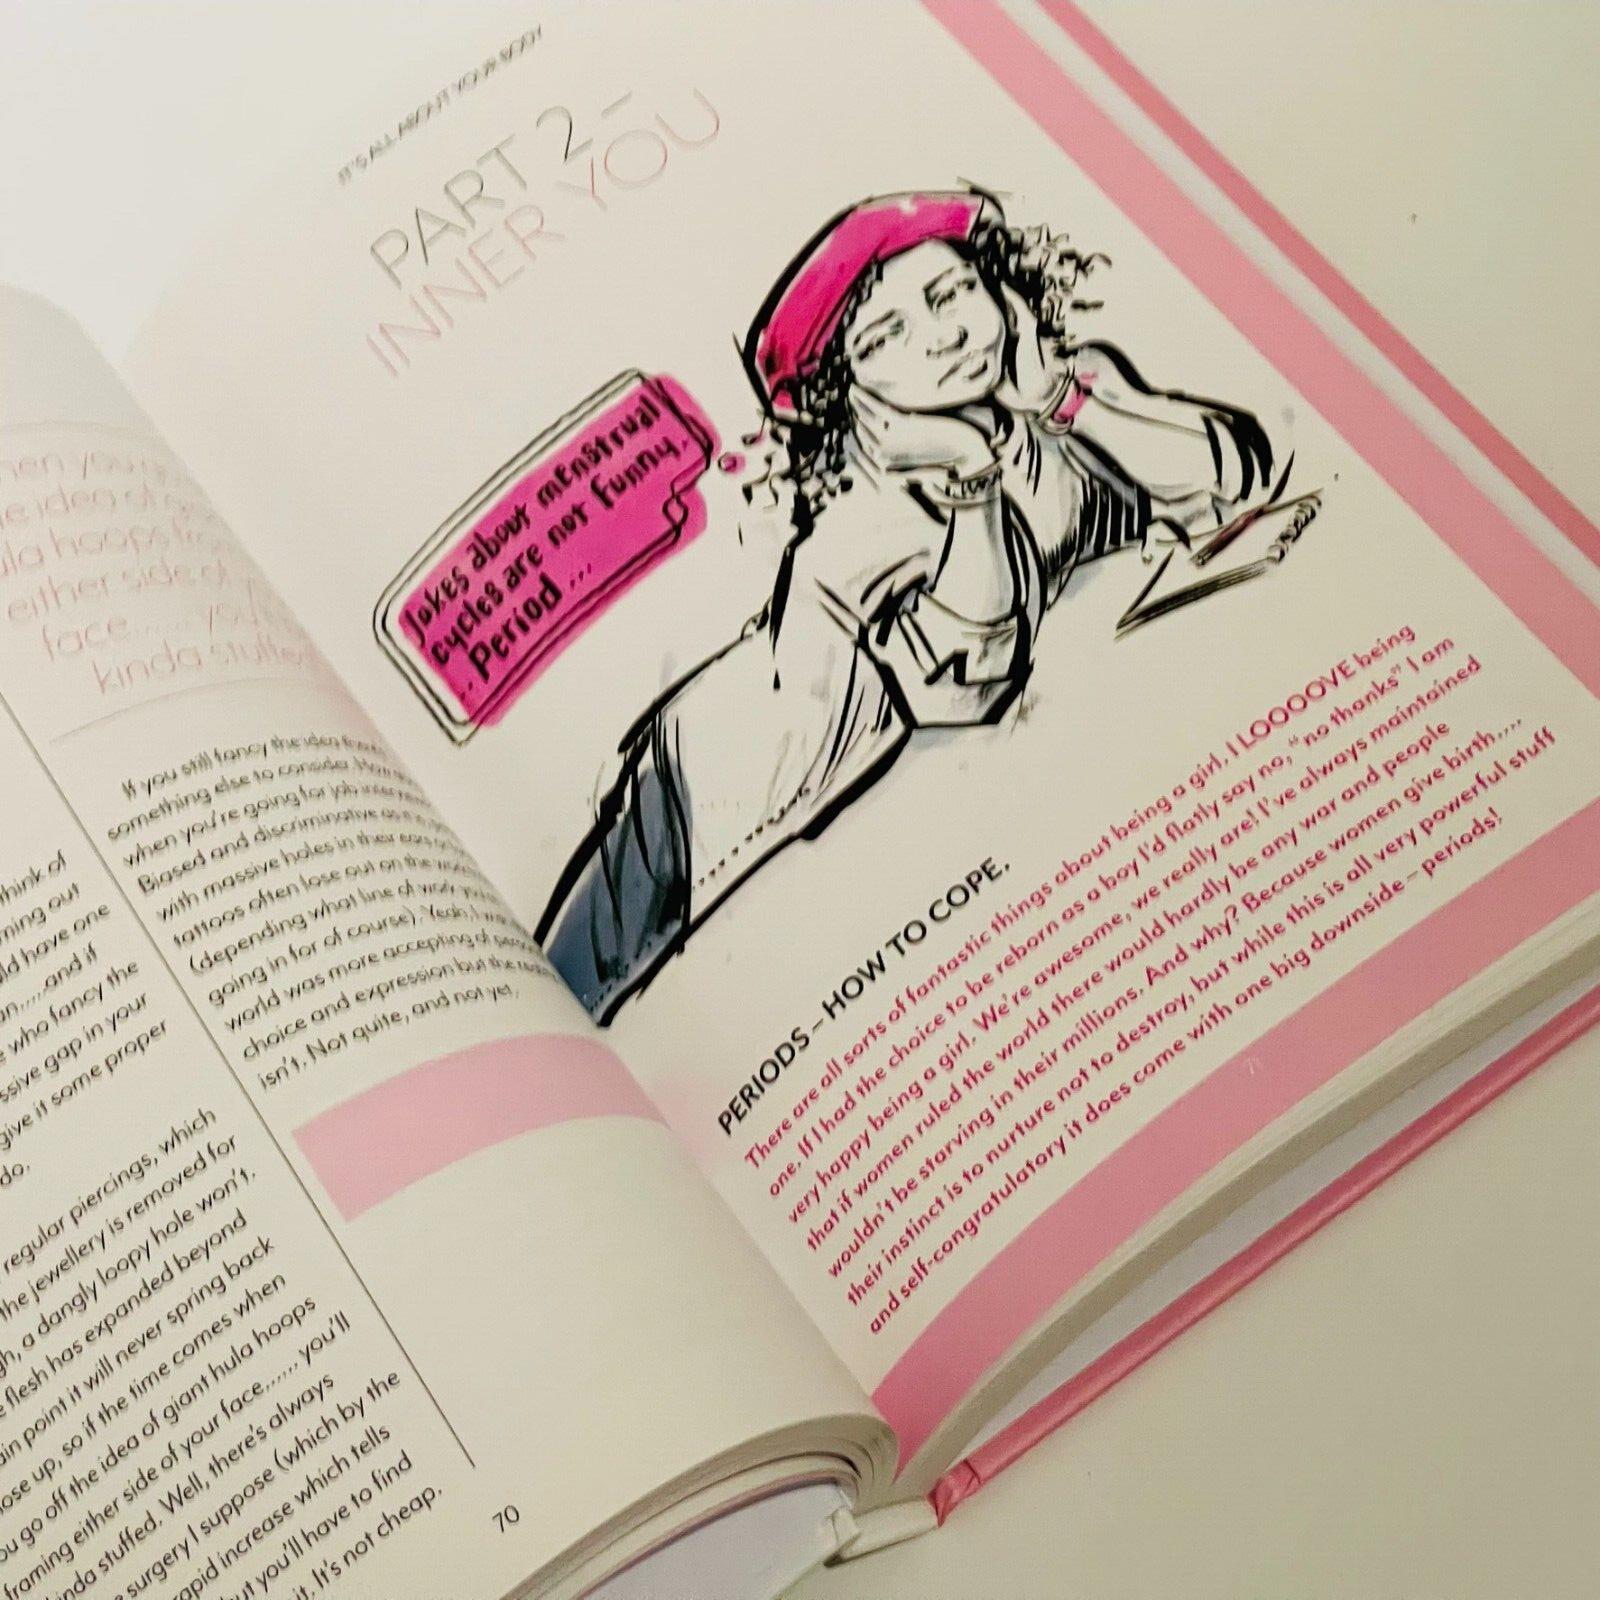 hen you
he idea of
ula hoops
either side of
face...... you
kinda stuffed
think of
ming out
ld have one
an.....and if
who fancy the
ssive gap in your
give it some proper
do.
regular piercings, which
the jewellery is removed for
gh, a dangly loopy hole won't.
flesh has expanded beyond
ain point it will never spring back
ose up, so if the time comes when
ou go off the idea of giant hula hoops
framing either side of your face...... you'll
kinda stuffed. Well, there's always
surgery I suppose (which by the
rapid increase which tells
but you'll have to find
it. It's not cheap.
If you still fancy the idea
something else to consider.
when you're going for job
Biased and discriminative as
with massive holes in their ears
tattoos often lose out on the
(depending what line of work
going in for of course). Yeah, I
world was more accepting of
choice and expression but the
isn't. Not quite, and not yet.
70
IT'S ALL ABOUT YOUR BODY
PART 2 –
INNER YOU
Jokes about menstrual
cycles are not funny.
..Period...
PERIODS – HOW TO COPE.
There are all sorts of fantastic things about being a girl. I LOOOOVE being
one. If I had the choice to be reborn as a boy I'd flatly say no, "no thanks" I am
very happy being a girl. We're awesome, we really are! I've always maintained
that if women ruled the world there would hardly be any war and people
wouldn't be starving in their millions. And why? Because women give birth....
their instinct is to nurture not to destroy, but while this is all very powerful stuff
and self-congratulatory it does come with one big downside – periods!
71